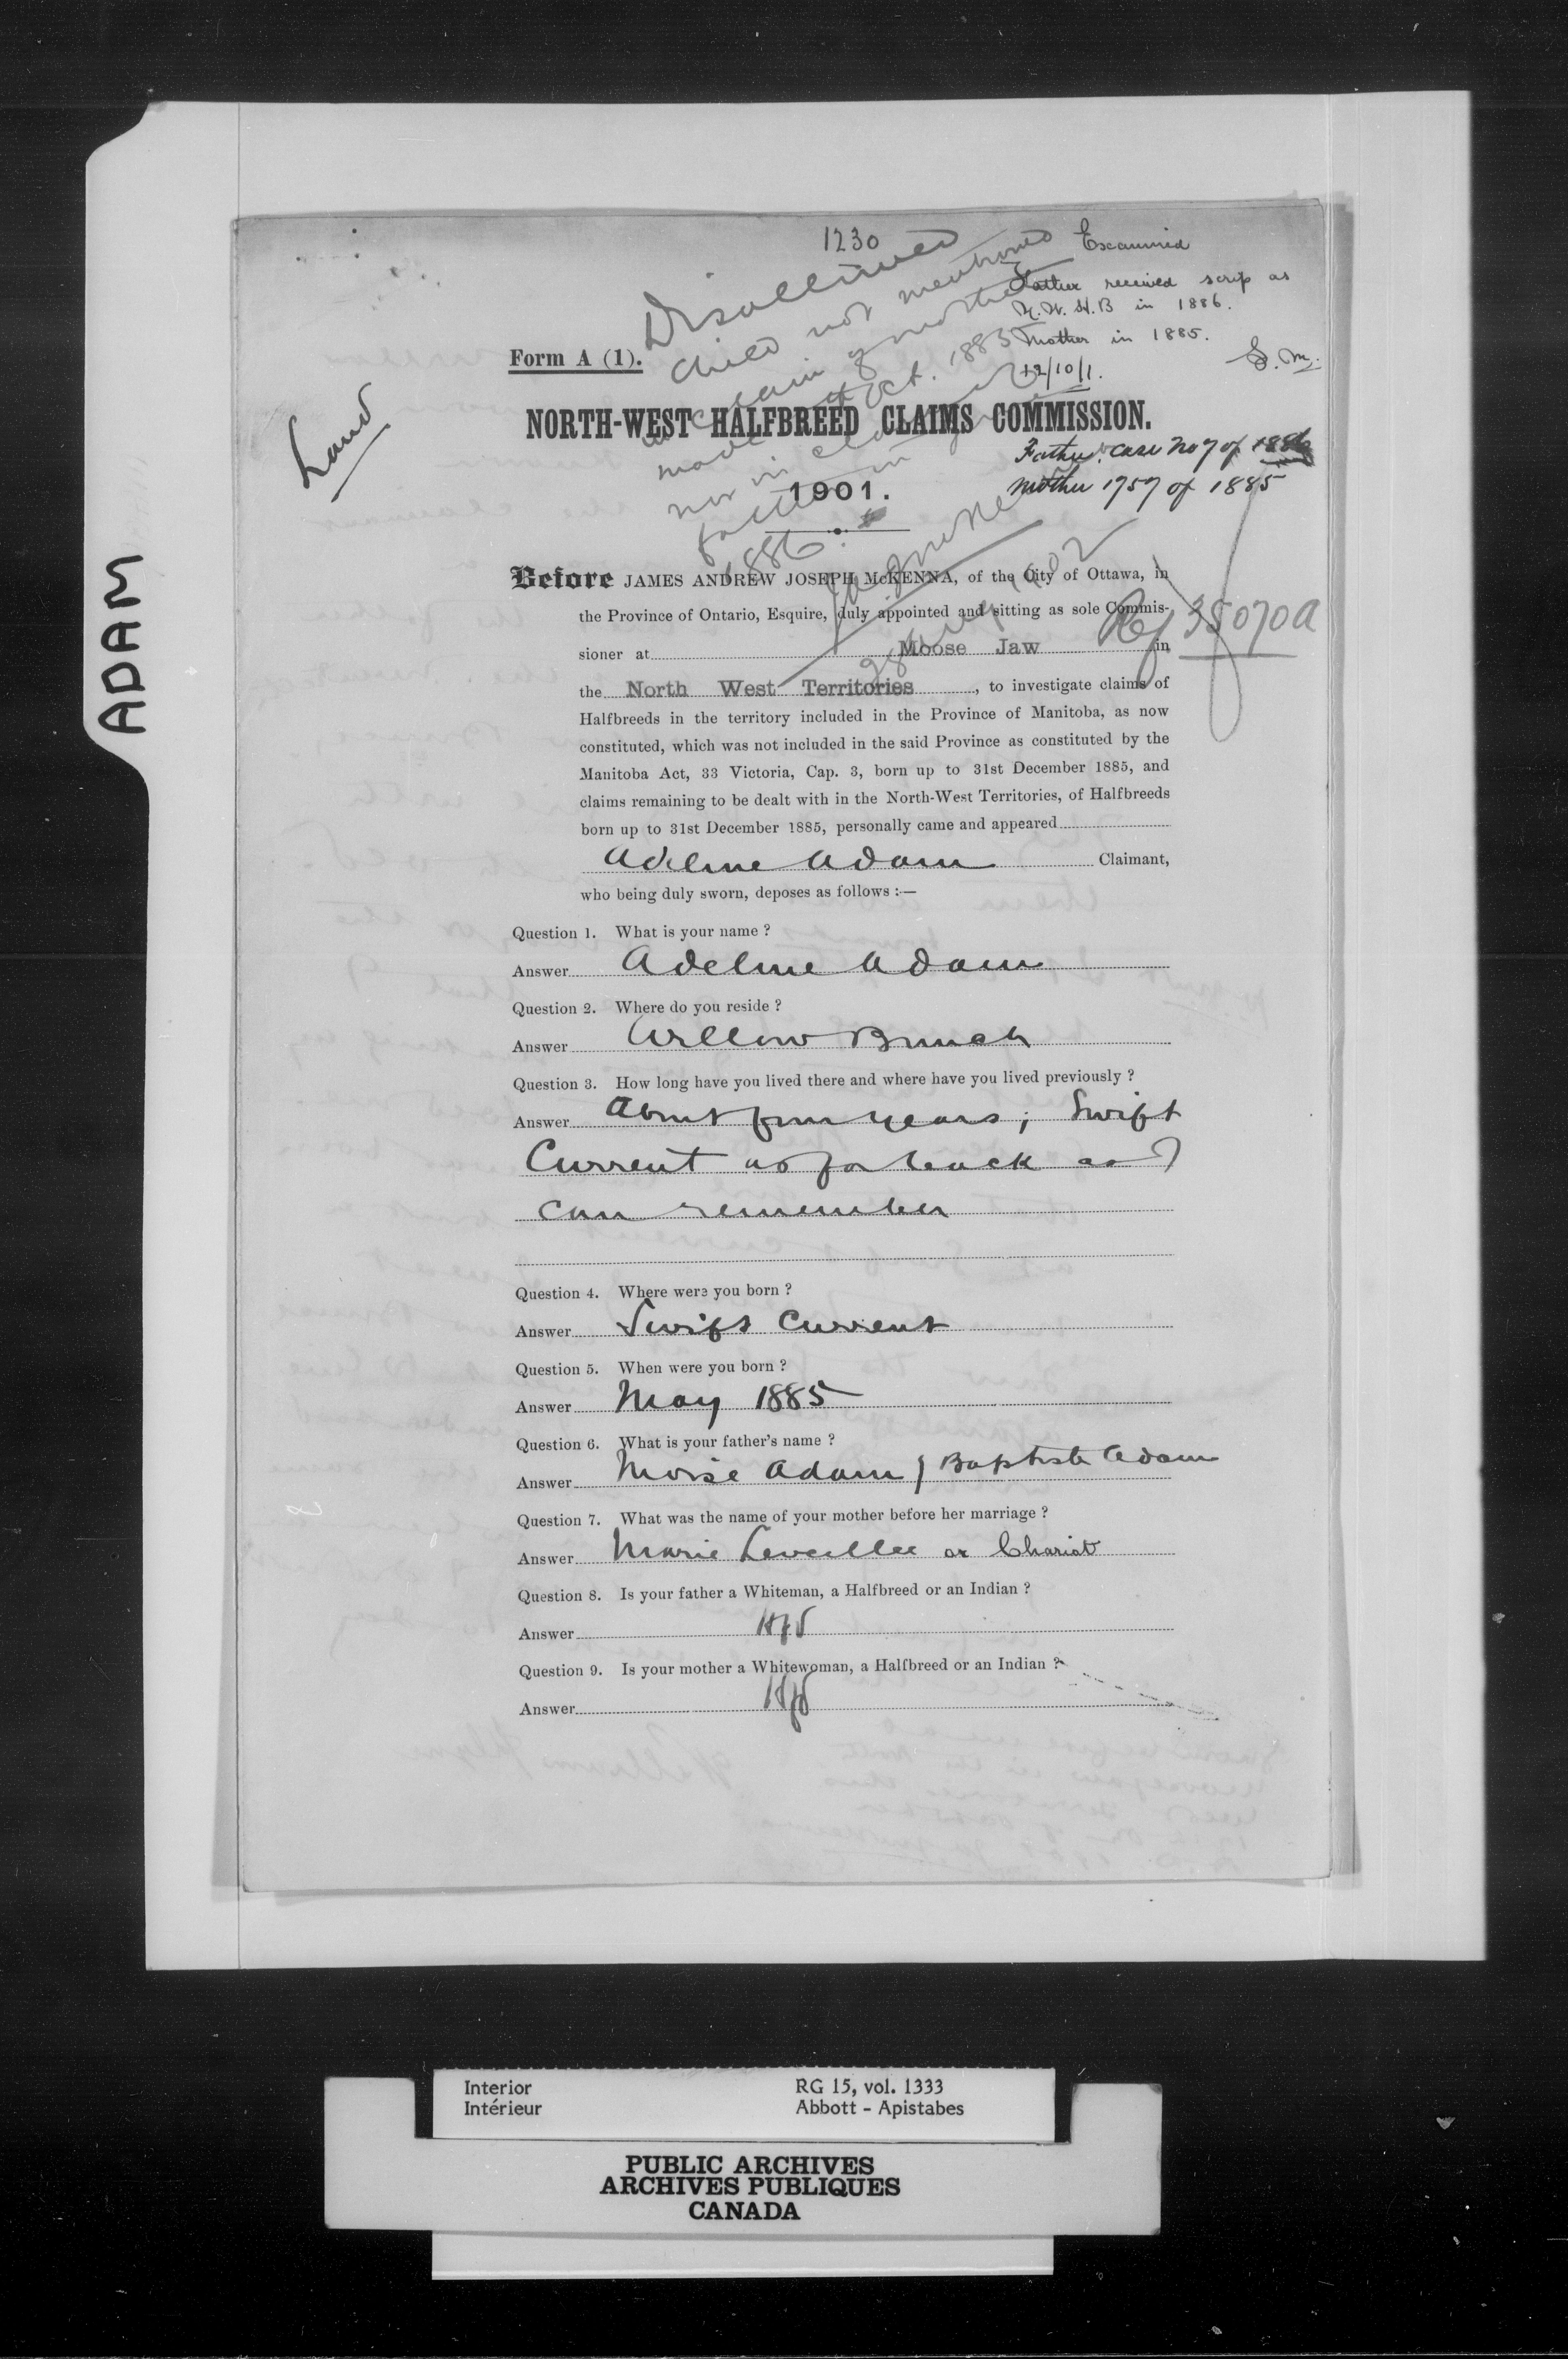 ADAM
1230
Examined
Father received scrip as
N.W.H.B in 1886.
Mother in 1885.
S.M.
12/10/1.
Disallowed
child not mentioned
in claim of mother
made Oct. 1885
nor in claim of
father in June
1886.
Form A (1).
Land
NORTH-WEST HALFBREED CLAIMS COMMISSION.
Father's case No 7 of 1886
Mother 1757 of 1885
1901.
Ref 35070a
Before JAMES ANDREW JOSEPH McKENNA, of the City of Ottawa, in
the Province of Ontario, Esquire, duly appointed and sitting as sole Commis-
sioner at Moose Jaw in
the North West Territories, to investigate claims of
Halfbreeds in the territory included in the Province of Manitoba, as now
constituted, which was not included in the said Province as constituted by the
Manitoba Act, 33 Victoria, Cap. 3, born up to 31st December 1885, and
claims remaining to be dealt with in the North-West Territories, of Halfbreeds
born up to 31st December 1885, personally came and appeared
Adeline Adam Claimant,
who being duly sworn, deposes as follows :—
Question 1. What is your name ?
Answer Adeline Adam
Question 2. Where do you reside ?
Answer Willow Bunch
Question 3. How long have you lived there and where have you lived previously ?
Answer About four years; Swift
Current as far back as I
can remember
Question 4. Where were you born ?
Answer Swift Current
Question 5. When were you born ?
Answer May 1885
Question 6. What is your father's name ?
Answer Moise Adam / Baptiste Adam
Question 7. What was the name of your mother before her marriage ?
Answer Marie Leveillee or Chariot
Question 8. Is your father a Whiteman, a Halfbreed or an Indian ?
Answer Hfb
Question 9. Is your mother a Whitewoman, a Halfbreed or an Indian ?
Answer Hfb
Interior RG 15, vol. 1333
Intérieur Abbott - Apistabes
PUBLIC ARCHIVES
ARCHIVES PUBLIQUES
CANADA